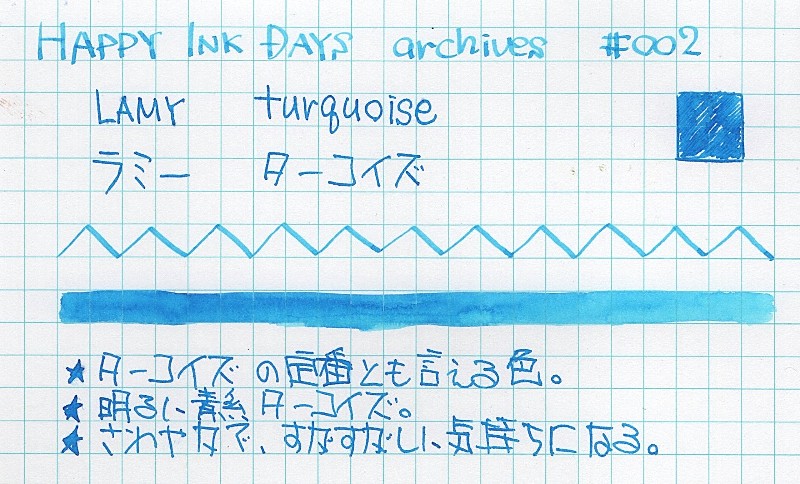 HAPPY INK DAYS archives #002
LAMY turquoise
ラミー ターコイズ
★ターコイズの定番とも言える色。
★明るい青系ターコイズ。
★さわやかで、すがすがしい気持ちになる。